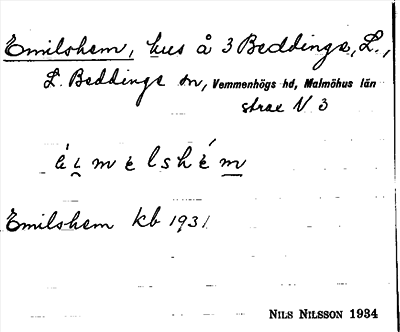 Emilshem, hus å 3 Beddinge, L.,
L. Beddinge sn, Vemmenhögs hd, Malmöhus län
strax N 3
Emilshem kb 1931
NILS NILSSON 1934